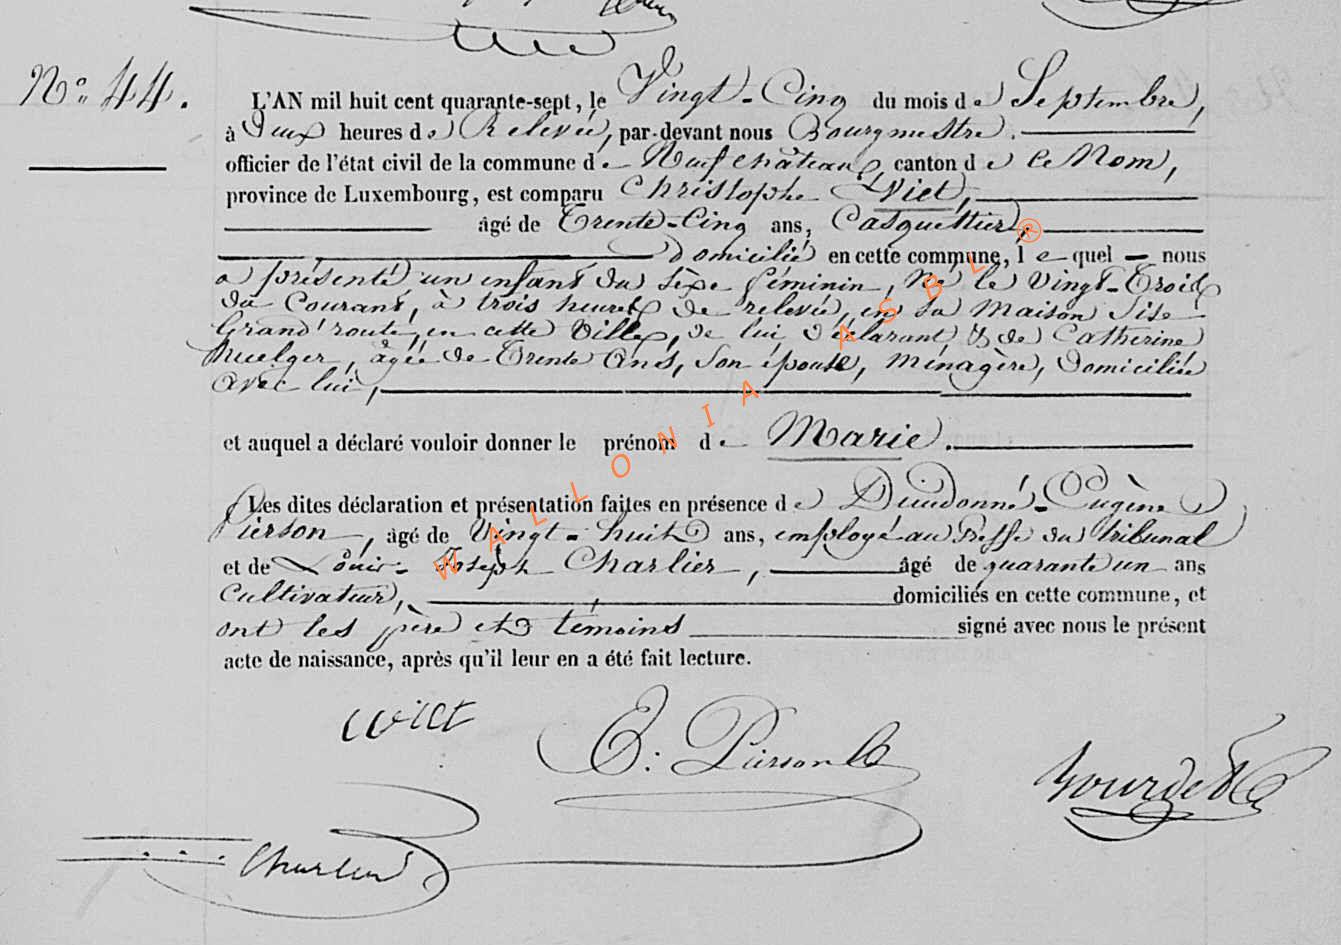 N° 44.
L'AN mil huit cent quarante-sept, le Vingt-Cinq du mois de Septembre,
à Deux heures de Relevée, par-devant nous Bourgmestre.
officier de l'état civil de la commune de Neufchâteau, canton de ce Nom,
province de Luxembourg, est comparu Christophe Viet,
âgé de Trente-Cinq ans, Casquettier,
domicilié en cette commune, lequel nous
a présenté un enfant du sèxe féminin, Né le Vingt-Trois
du Courant, à trois heures de relevée, en sa Maison Sise
Grand'route, en cette Ville, de lui déclarant & de Catherine
Muelger, âgée de Trente Ans, Son épouse, Ménagère, domiciliée
avec lui,
et auquel a déclaré vouloir donner le prénom de Marie.
Les dites déclaration et présentation faites en présence de Dieudonné-Eugène
Pierson, âgé de Vingt-huit ans, employé au Greffe du tribunal
et de Louis-Joseph Charlier, âgé de quarante un ans
Cultivateur, domiciliés en cette commune, et
ont les père et témoins signé avec nous le présent
acte de naissance, après qu'il leur en a été fait lecture.
E. Pierson
Charlier
WALLONIA ASBL ®